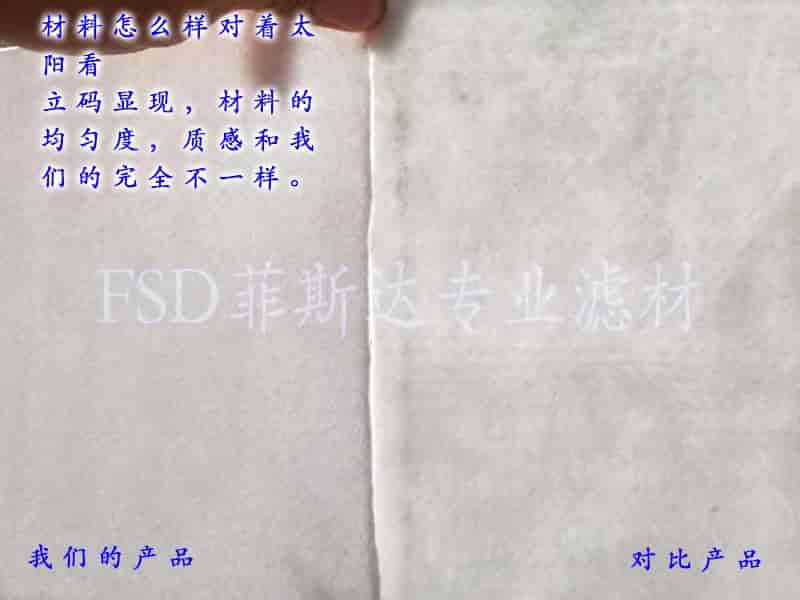 材料怎么样对着太
阳看
立码显现，材料的
均匀度，质感和我
们的完全不一样。
FSD菲斯达专业滤材
我们的产品
对比产品